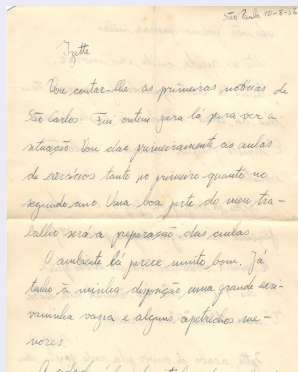 São Paulo 10-8-56
Izette
Vou contar-lhe as primeiras notícias de
São Carlos Fui ontem para lá para ver a
situação. Vou dar primeiramente as aulas
de exercícios tanto no primeiro quanto no
segundo ano. Uma boa pte do meu tra-
balho será a preparação das aulas
O ambiente lá parece muito bom. Já
tenho à minha disposição uma grande escri-
vaninha vazia e alguns apetrechos me-
nores.